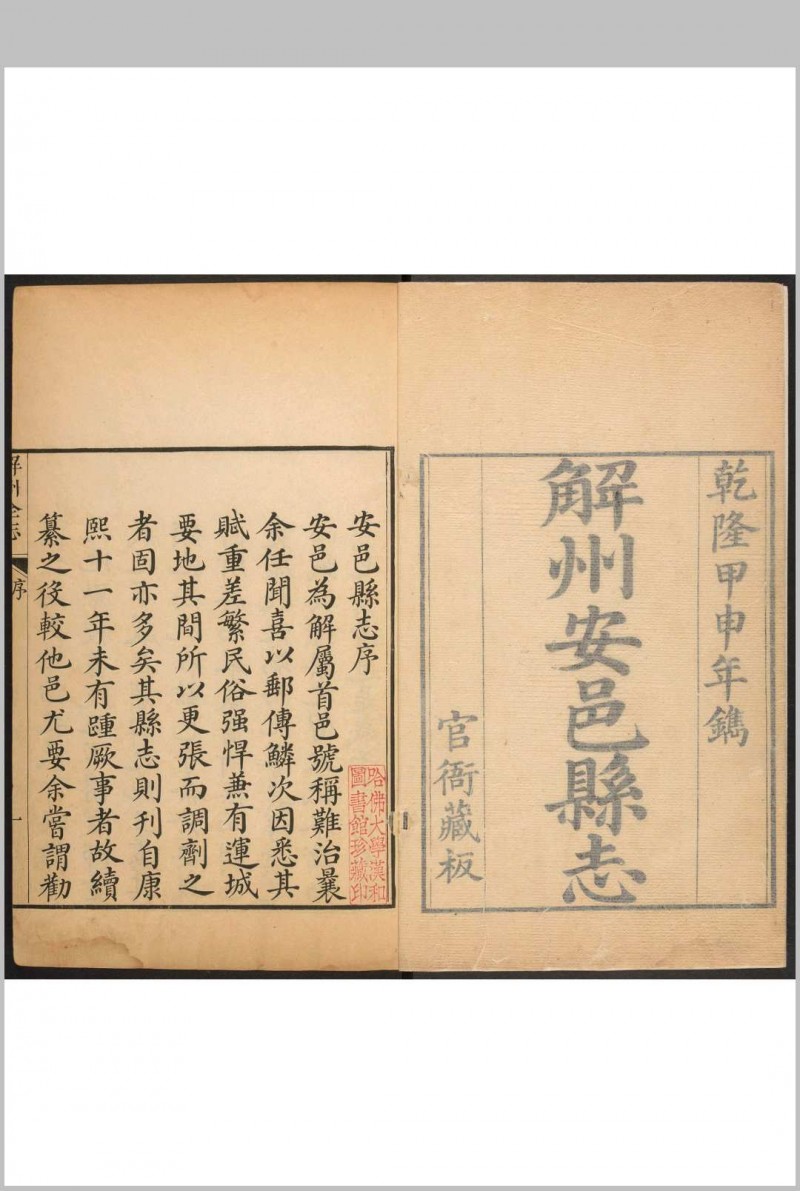 乾隆甲申年鐫
解州安邑縣志
官衙藏板
安邑縣志序
哈佛大學漢和
圖書館珍藏印
安邑為解屬首邑號稱難治曩
余任聞喜以郵傳鱗次因悉其
賦重差繁民俗强悍蕪有運城
要地其間所以更張而調劑之
者固亦多矣其縣志則刊自康
熙十一年未有踵厥事者故續
纂之役較他邑尤要余嘗謂勸
解州全志
序
一